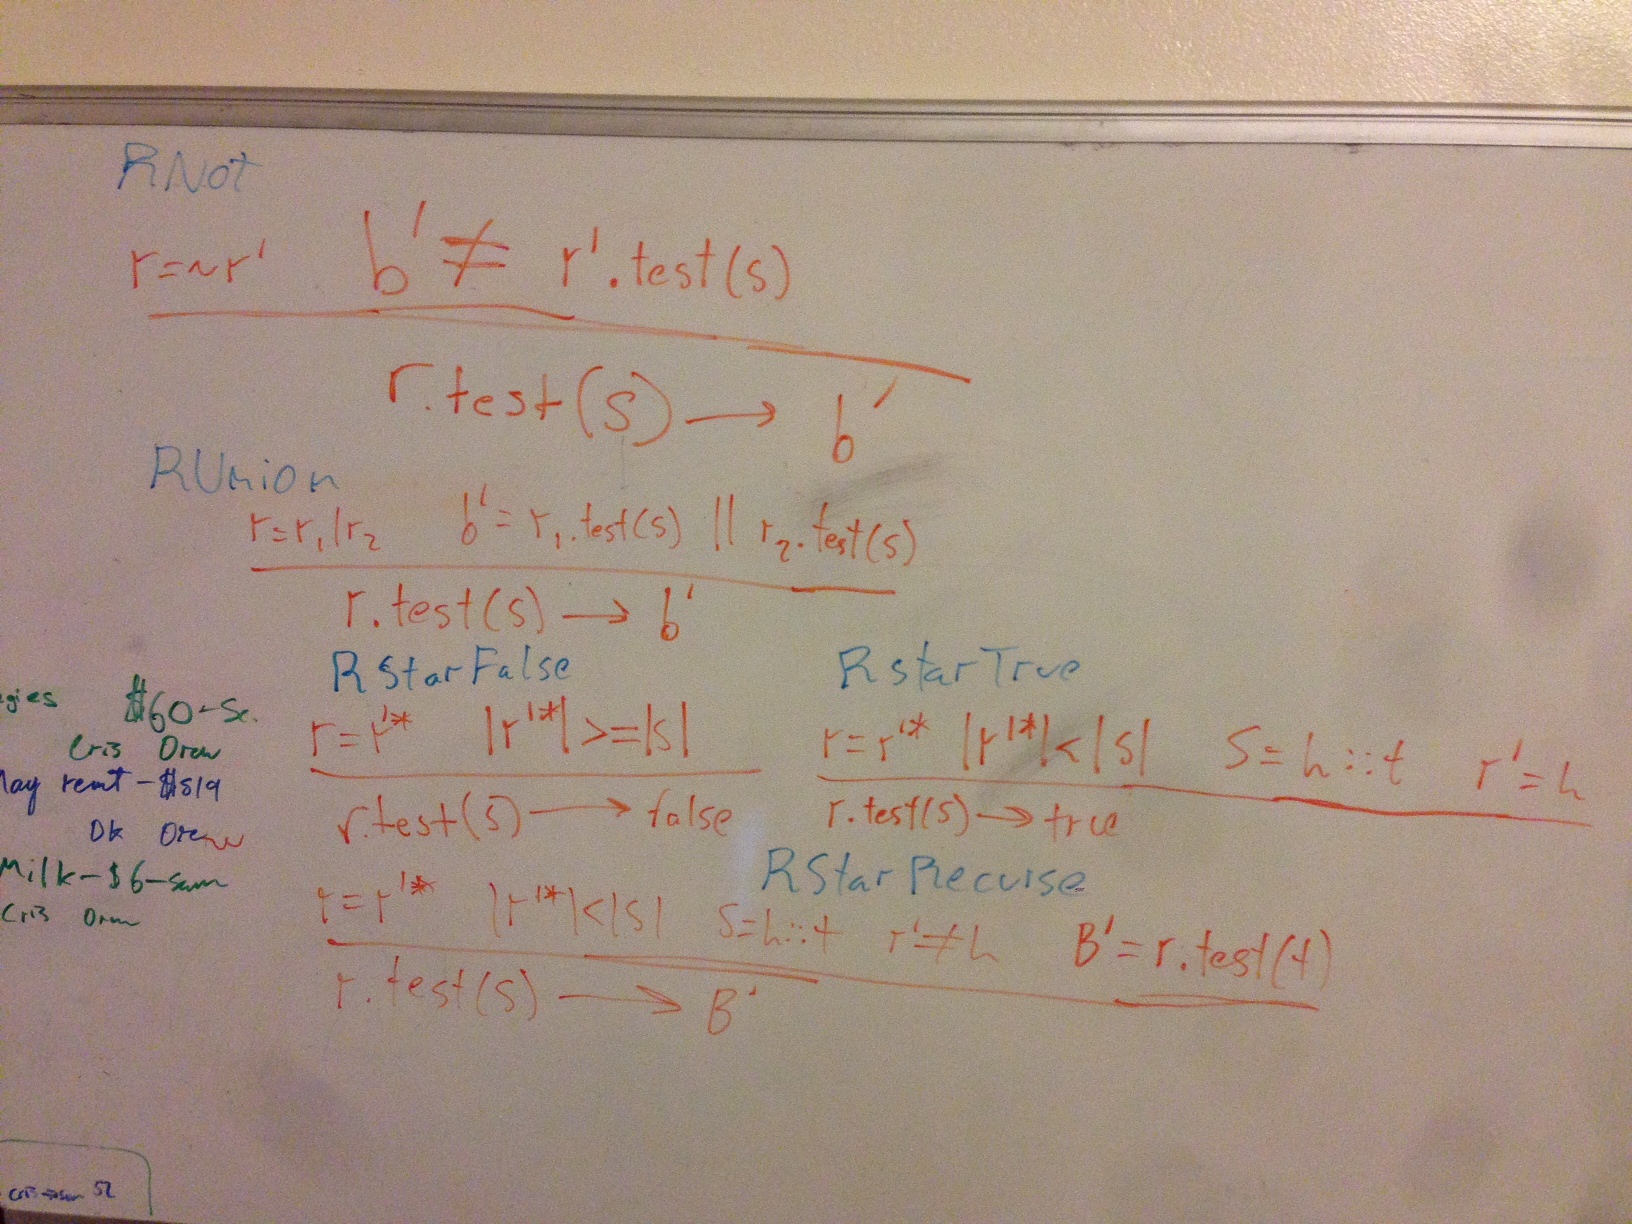 RNot
r=~r' b' ≠ r'.test(s)
r.test(s) → b'
RUnion
r=r₁|r₂ b'=r₁.test(s) || r₂.test(s)
r.test(s) → b'
RStarFalse
r=r'* |r'*|>=|s|
r.test(s) → false
RstarTrue
r=r'* |r'*|<|s| S=h::t r'=h
r.test(s) → true
RStarRecurse
r=r'* |r'*|<|s| S=h::t r'≠h B'=r.test(t)
r.test(s) → B'
gies $60-
Cris Drew
May rent-$519
Ok Drew
Milk-$6-sam
Cris Drew
52